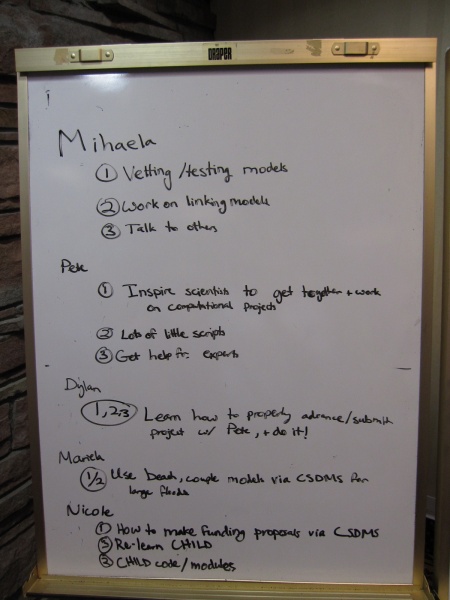 DRAPER
Mihaela
① Vetting/testing models
② Work on linking models
③ Talk to others
Pete
① Inspire scientists to get together + work
on computational projects
② Lots of little scripts
③ Get help fr. experts
Dylan
1,2,3 Learn how to properly advance/submit
project w/ Pete, + do it!
Mariela
1/2 Use beach, couple models via CSDMS for
large floods
Nicole
① How to make funding proposals via CSDMS
③ Re-learn CHILD
③ CHILD code/modules